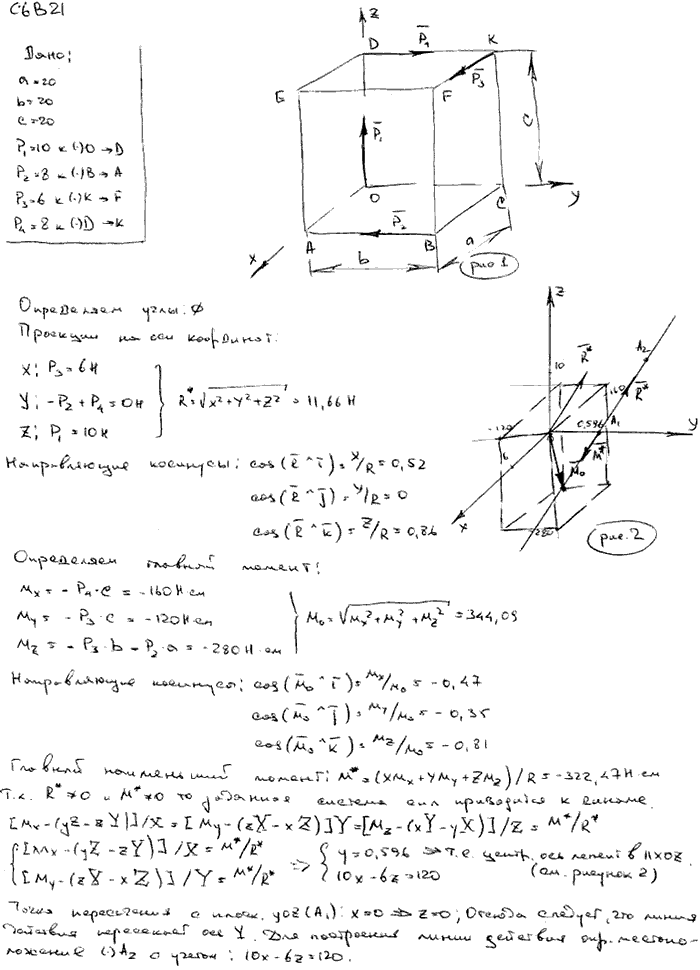 С6В21
Дано:
a=20
b=20
c=20
P₁=10 к (·)O → D
P₂=8 к (·)B → A
P₃=6 к (·)K → F
P₄=8 к (·)D → K
z
D
P̄₄
K
P̄₃
E
F
P̄₁
c
O
C
y
A
P̄₂
B
x
b
a
рис 1
Определяем углы: ∅
Проекции на оси координат:
X: P₃ = 6 Н
Y: -P₂ + P₄ = 0 Н
Z: P₁ = 10 Н
R* = √(X²+Y²+Z²) = 11,66 Н
Направляющие косинусы: cos(R̄ ^ i̅) = X/R = 0,52
cos(R̄ ^ j̅) = Y/R = 0
cos(R̄ ^ k̅) = Z/R = 0,86
z
A₂
10
R̄*
-160
R̄*
-120
0,596
A₁
y
6
M̄₀
M̄*
x
-280
рис. 2
Определяем главный момент:
Mx = - P₄·c = -160 Н·см
My = - P₃·c = -120 Н·см
Mz = - P₃·b - P₂·a = -280 Н·см
M₀ = √(Mx²+My²+Mz²) = 344,09
Направляющие косинусы: cos(M̄₀ ^ i̅) = Mx/M₀ = -0,47
cos(M̄₀ ^ j̅) = My/M₀ = -0,35
cos(M̄₀ ^ k̅) = Mz/M₀ = -0,81
Главный наименьший момент: M* = (XMx+YMy+ZMz)/R = -322,47 Н·см
Т.к. R* ≠ 0 и M* ≠ 0 то заданная система сил приводится к динаме.
[Mx-(yZ-zY)]/X = [My-(zX-xZ)]Y = [Mz-(xY-yX)]/Z = M*/R*
{[Mx-(yZ-zY)]/X = M*/R*
{[My-(zX-xZ)]/Y = M*/R*
=> { y = 0,596 => т.е. центр. ось лежит в ||XOZ.
{ 10x-6z=120 (см. рисунок 2)
Точка пересечения с плоск. yoz (A₁): x=0 => z=0; Отсюда следует, что линия
действия пересекает ось Y. Для построения линии действия опр. местопо-
ложение (·)A₂ с учетом: 10x-6z=120.